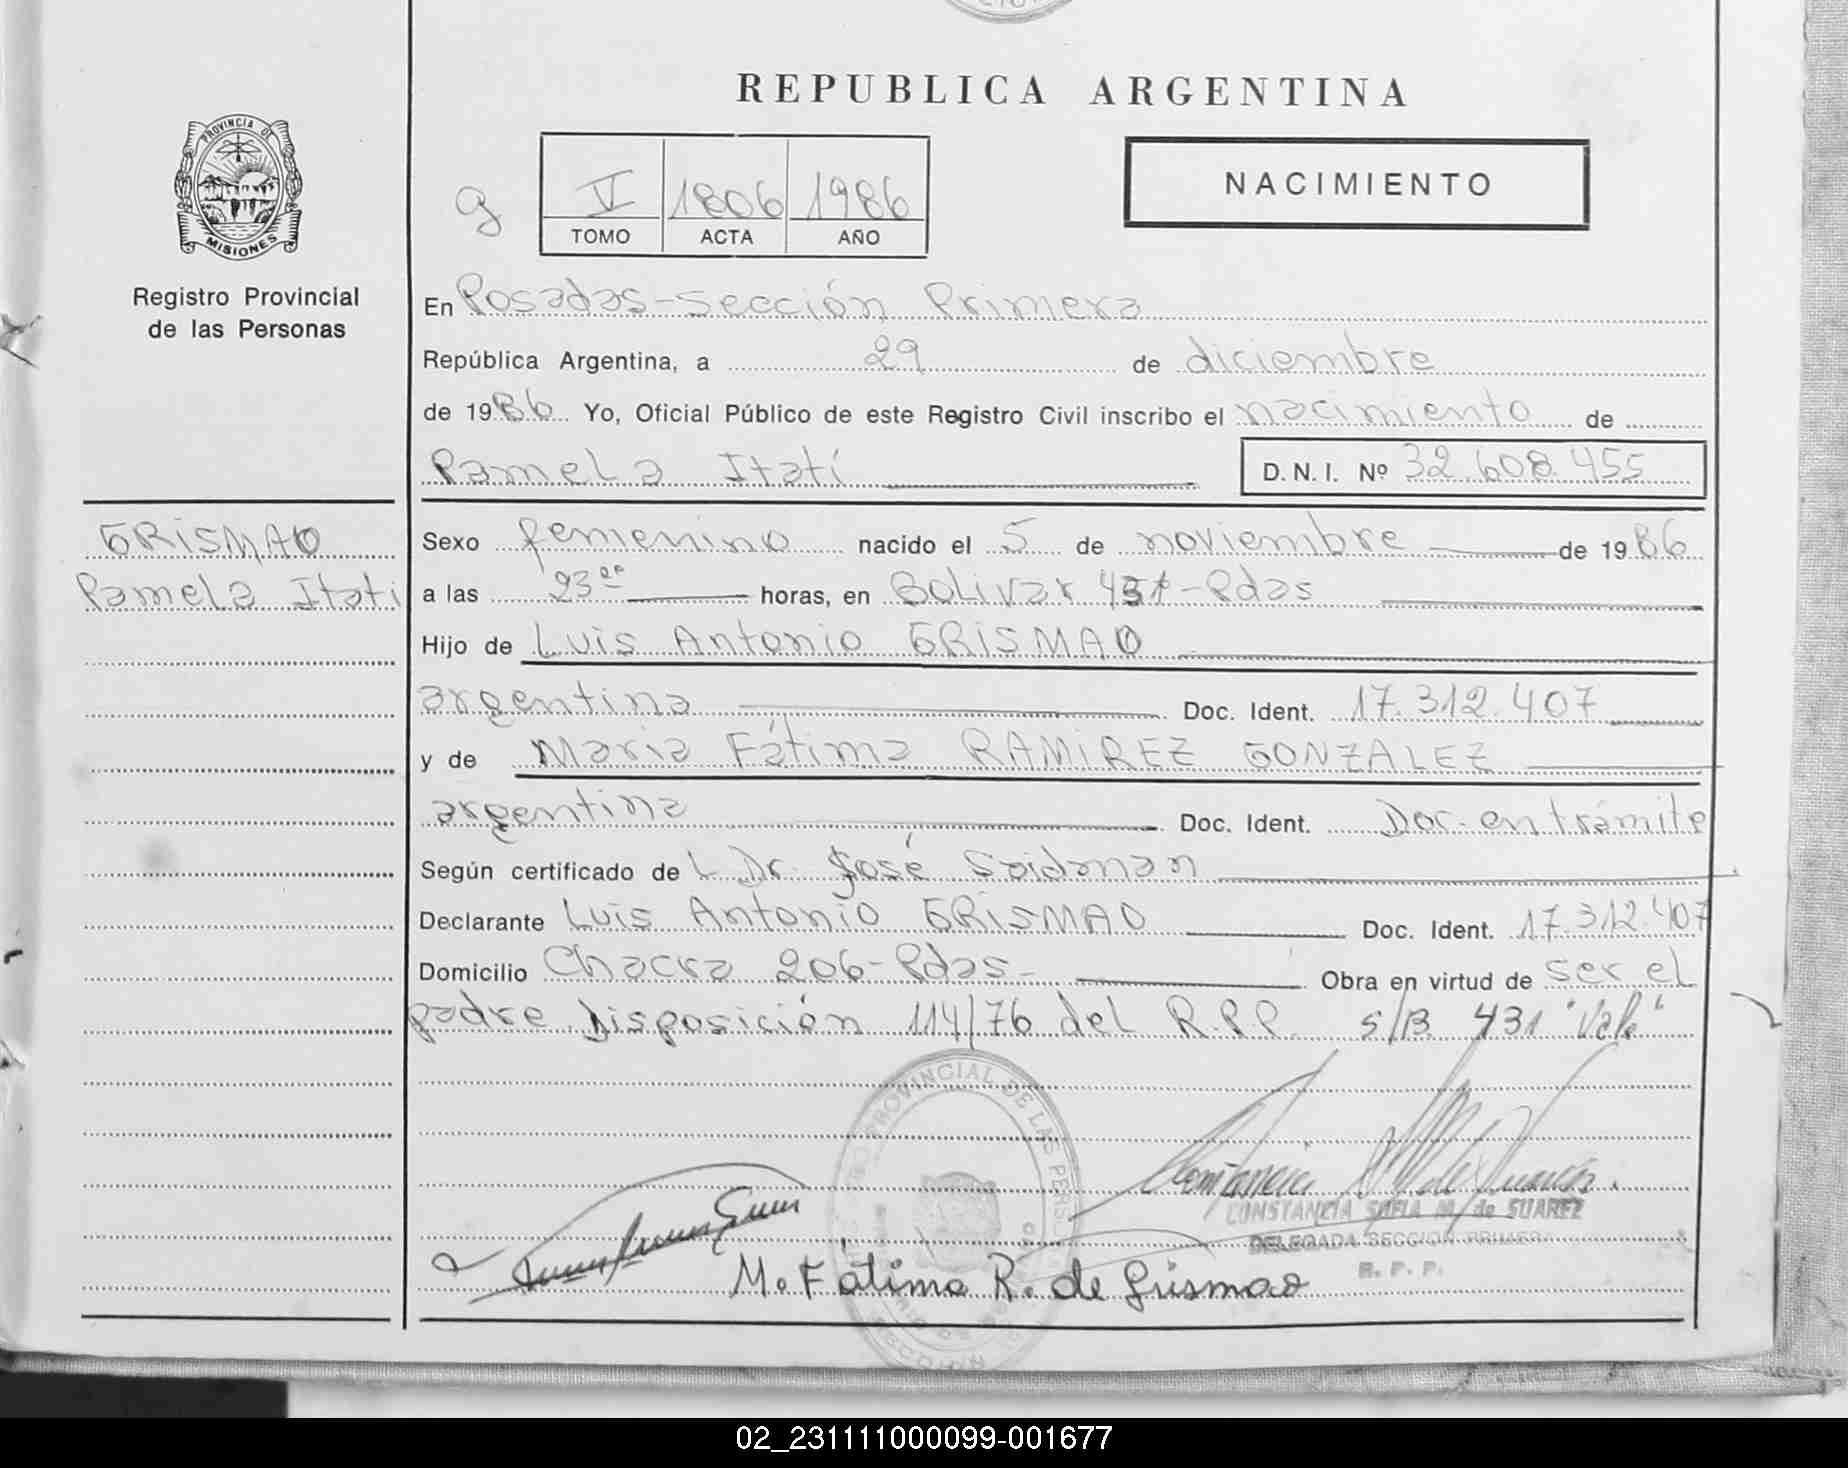 REPUBLICA ARGENTINA
PROVINCIA DE
MISIONES
Registro Provincial
de las Personas
g
V 1806 1986
TOMO ACTA AÑO
NACIMIENTO
En Posadas-sección Primera
República Argentina, a 29 de diciembre
de 1986 Yo, Oficial Público de este Registro Civil inscribo el nacimiento de
Pamela Itatí D.N.I. Nº 32.608.455
GRISMAO
Pamela Itati
Sexo femenino nacido el 5 de noviembre de 1986
a las 23 horas, en Bolivar 431-Pdas
Hijo de Luis Antonio GRISMAO
argentina Doc. Ident. 17.312.407
y de Maria Fátima RAMIREZ GONZALEZ
argentina Doc. Ident. Doc. en trámite
Según certificado de L Dr. José Soidman
Declarante Luis Antonio GRISMAO Doc. Ident. 17.312.407
Domicilio Chacra 206-Pdas- Obra en virtud de ser el
padre Disposición 114/76 del R.P.P. s/B 431 "Vale"
PROVINCIAL DE LAS
CONSTANCIA SOFIA M. de SUAREZ
DELEGADA SECCION PRIMERA
R. P. P.
M. Fátima R. de Grismao
02_231111000099-001677